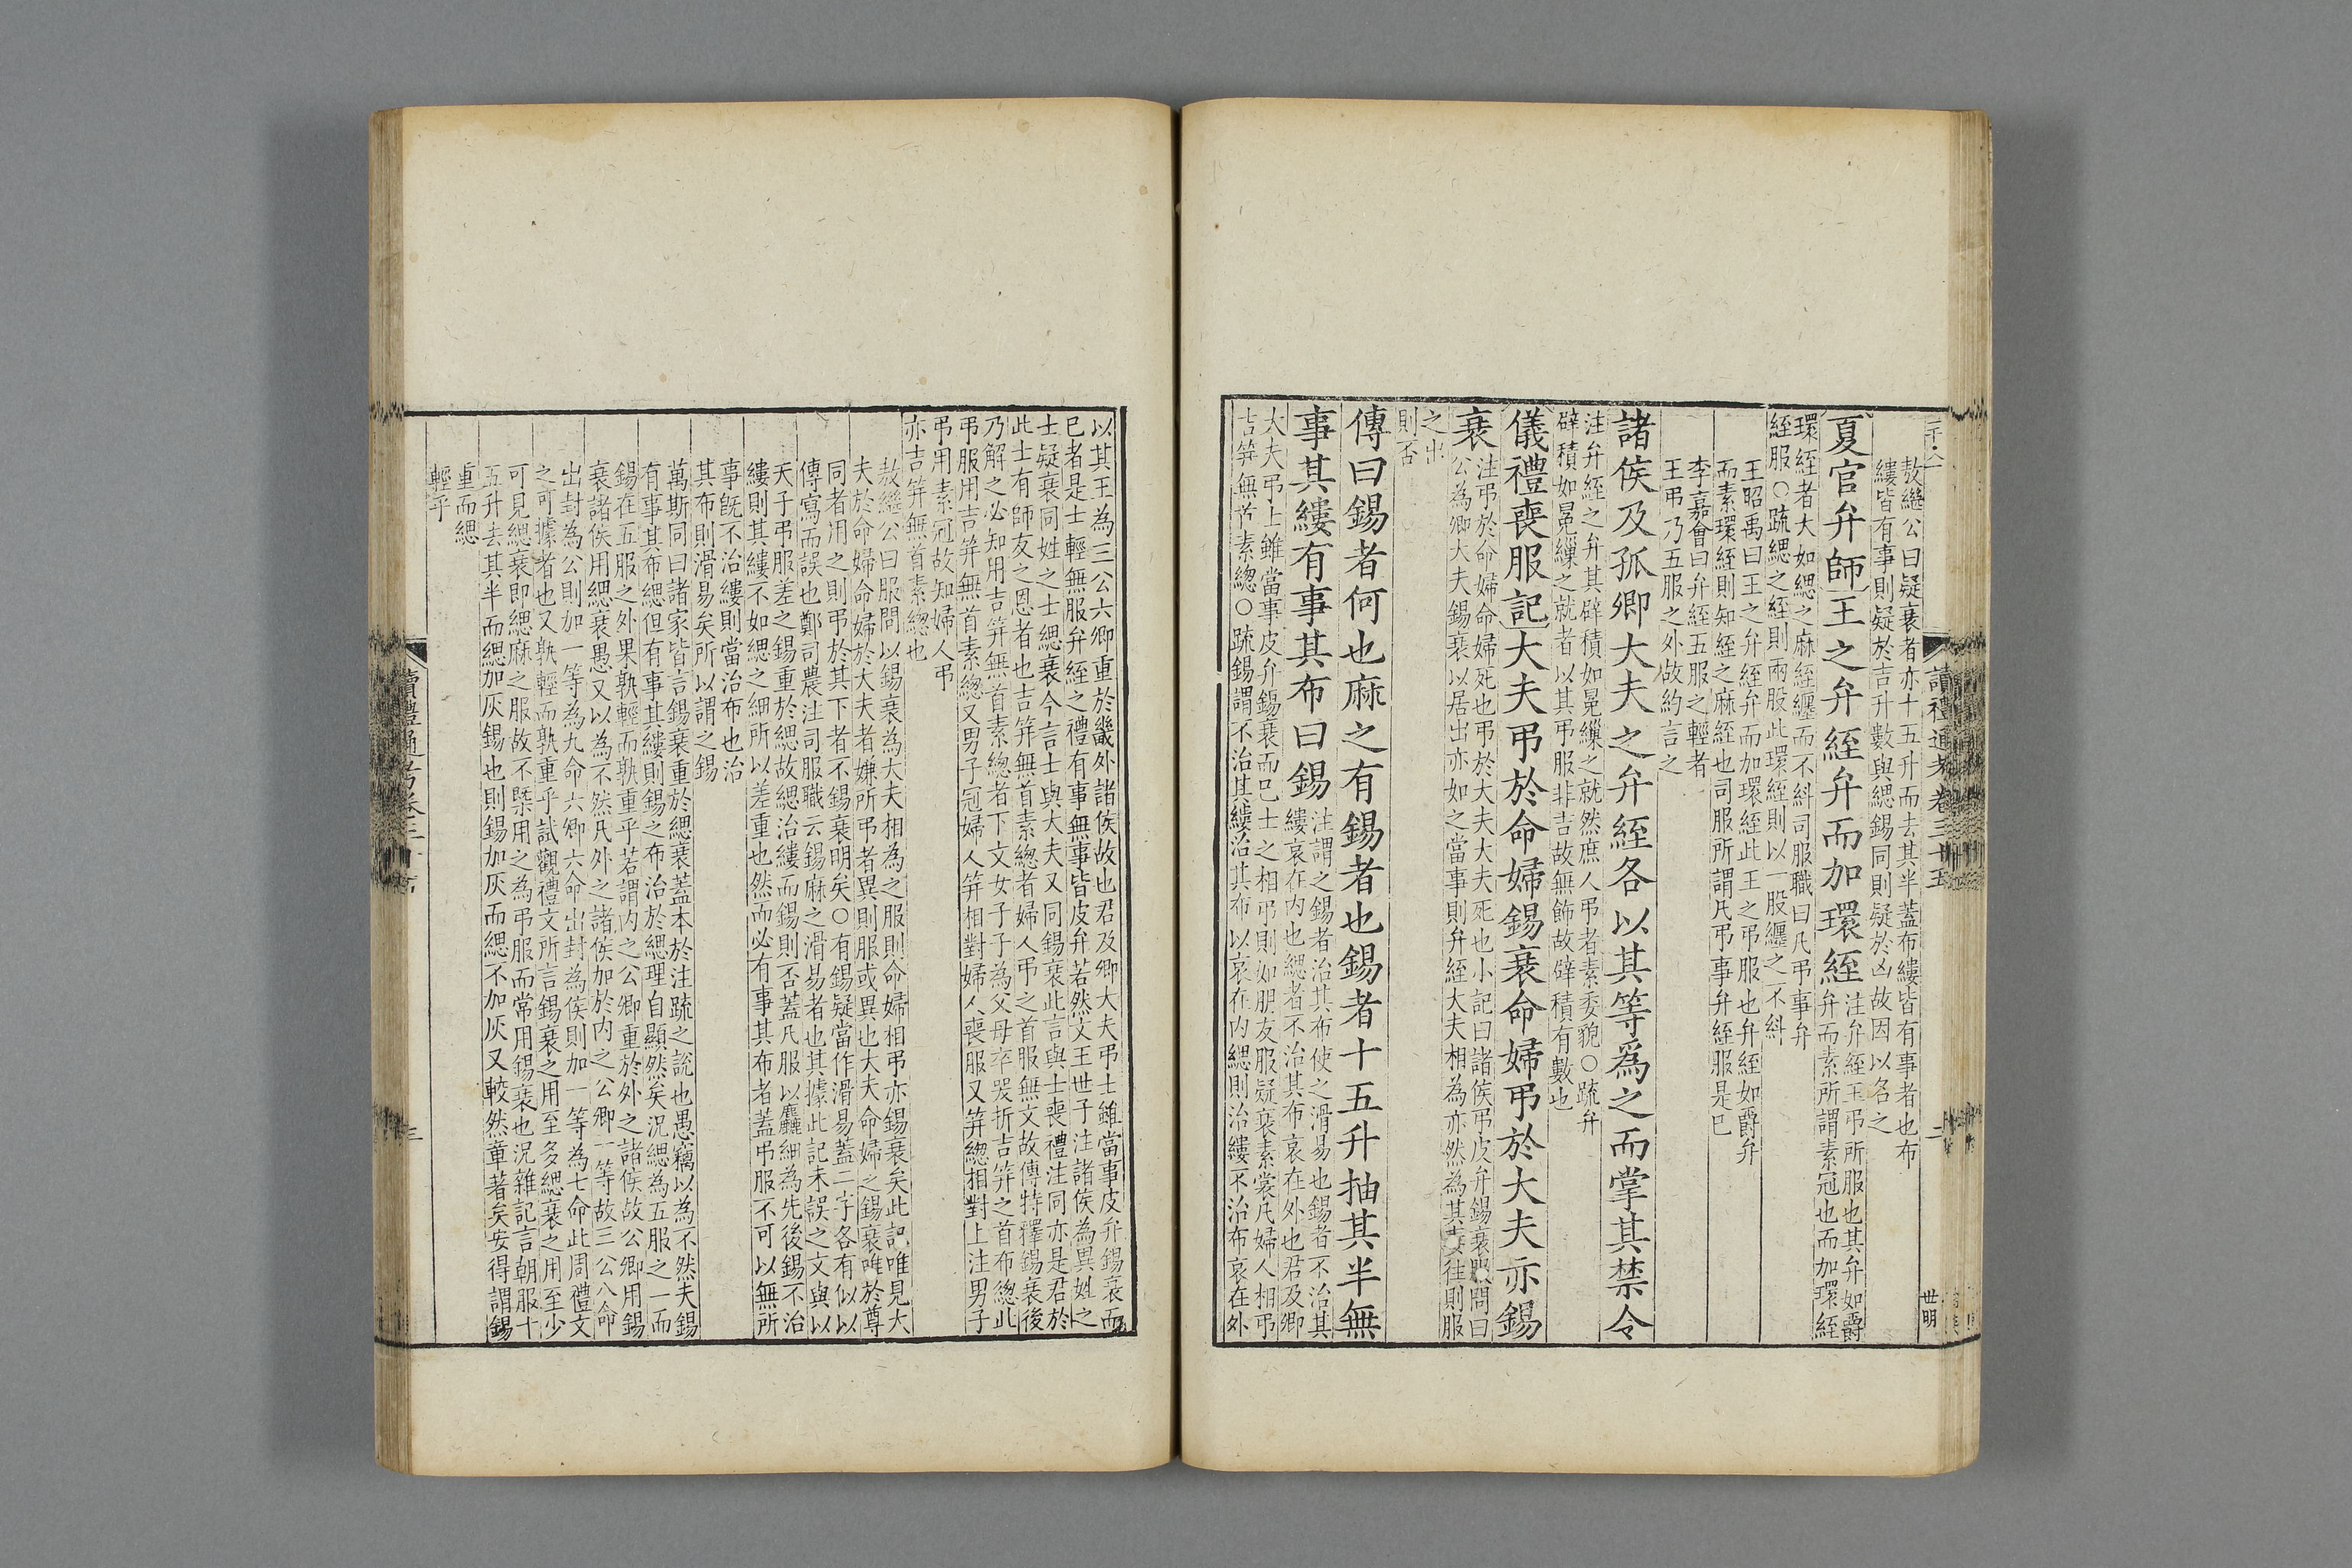 敖繼公曰疑衰者亦十五升而去其半蓋布縷皆有事者也布
縷皆有事則疑於吉升數與緦錫同則疑於凶故因以名之
夏官弁師王之弁絰弁而加環絰
注弁絰王弔所服也其弁如爵
弁而素所謂素冠也而加環絰
環絰者大如緦之麻絰纏而不糾司服職曰凡弔事弁
絰服○疏緦之絰則兩股此環絰則以一股纏之不糾
王昭禹曰王之弁絰弁而加環絰此王之弔服也弁絰如爵弁
而素環絰則知絰之麻絰也司服所謂凡弔事弁絰服是已
李嘉會曰弁絰五服之輕者
王弔乃五服之外故約言之
諸侯及孤卿大夫之弁絰各以其等爲之而掌其禁令
注弁絰之弁其辟積如冕繅之就然庶人弔者素委貌○疏弁
辟積如冕繅之就者以其弔服非吉故無飾故辟積有數也
儀禮喪服記大夫弔於命婦錫衰命婦弔於大夫亦錫
衰
注弔於命婦命婦死也弔於大夫大夫死也小記曰諸侯弔皮弁錫衰服問曰
公為卿大夫錫衰以居出亦如之當事則弁絰大夫相為亦然為其妻往則服
之出
則否
傳曰錫者何也麻之有錫者也錫者十五升抽其半無
事其縷有事其布曰錫
注謂之錫者治其布使之滑易也錫者不治其
縷哀在內也緦者不治其布哀在外也君及卿
大夫弔士雖當事皮弁錫衰而已士之相弔則如朋友服疑衰素裳凡婦人相弔
吉笄無首素總○疏錫謂不治其縷治其布以哀在內緦則治縷不治布哀在外
讀禮通考卷三十五
二
世明
以其王為三公六卿重於畿外諸侯故也君及卿大夫弔士雖當事皮弁錫衰而
已者是士輕無服弁絰之禮有事無事皆皮弁若然文王世子注諸侯為異姓之
士疑衰同姓之士緦衰今言士與大夫又同錫衰此言與士喪禮注同亦是君於
此士有師友之恩者也吉笄無首素總者婦人弔之首服無文故傳特釋錫衰後
乃解之必知用吉笄無首素總者下文女子子為父母卒哭折吉笄之首布總此
弔服用吉笄無首素總又男子冠婦人笄相對婦人喪服又笄總相對上注男子
弔用素冠故知婦人弔
亦吉笄無首素總也
敖繼公曰服問以錫衰為大夫相為之服則命婦相弔亦錫衰矣此記唯見大
夫於命婦命婦於大夫者嫌所弔者異則服或異也大夫命婦之錫衰唯於尊
同者用之則弔於其下者不錫衰明矣○有錫疑當作滑易蓋二字各有似以
傳寫而誤也鄭司農注司服職云錫麻之滑易者也其據此記未誤之文與以
天子弔服差之錫重於緦故緦治縷而錫則否蓋凡服以麤細為先後錫不治
縷則其縷不如緦之細所以差重也然而必有事其布者蓋弔服不可以無所
事旣不治縷則當治布也治
其布則滑易矣所以謂之錫
萬斯同曰諸家皆言錫衰重於緦衰蓋本於注疏之說也愚竊以為不然夫錫
有事其布緦但有事其縷則錫之布治於緦理自顯然矣況緦為五服之一而
錫在五服之外果孰輕而孰重乎若謂內之公卿重於外之諸侯故公卿用錫
衰諸侯用緦衰愚又以為不然凡外之諸侯加於內之公卿一等故三公八命
出封為公則加一等為九命六卿六命出封為侯則加一等為七命此周禮文
之可據者也又孰輕而孰重乎試觀禮文所言錫衰之用至多緦衰之用至少
可見緦衰即緦麻之服故不槩用之為弔服而常用錫衰也況雜記言朝服十
五升去其半而緦加灰錫也則錫加灰而緦不加灰又較然章著矣安得謂錫
重而緦
輕乎
讀禮通考卷三十五
三